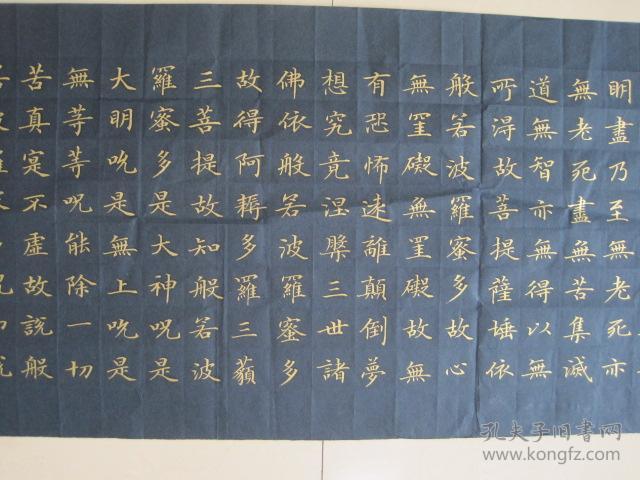 明盡乃至無老死亦
無老死盡無苦集滅
道無智亦無得以無
所得故菩提薩埵依
般若波羅蜜多故心
無罣礙無罣礙故無
有恐怖遠離顛倒夢
想究竟涅槃三世諸
佛依般若波羅蜜多
故得阿耨多羅三藐
三菩提故知般若波
羅蜜多是大神呪是
大明呪是無上呪是
無等等呪能除一切
苦真寔不虛故說般
孔夫子旧书网
www.kongfz.com